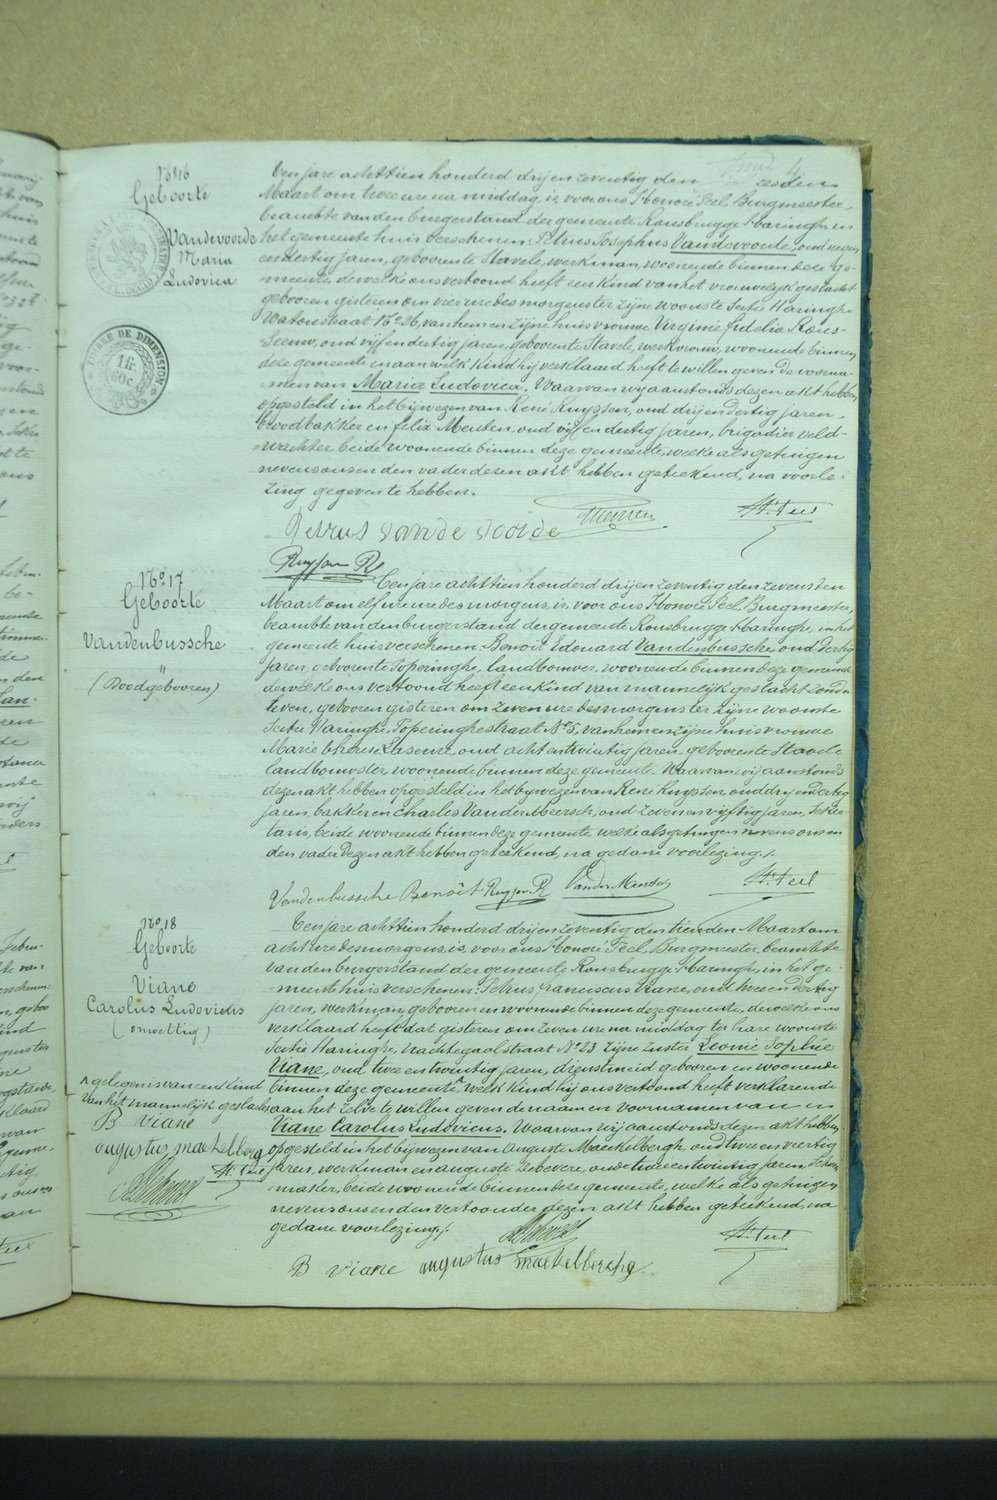 No 16
Geboorte
Vandevoorde
Maria
Ludovica
TIMBRE DE DIMENSION
1 fr.
60 c.
Ten jare achttien honderd drij en zeventig den zesden
Maart om twee ure na middag, is voor ons Honoré Feel, Burgmeester,
beambte van den burgerstand der gemeente Rousbrugge-Haringhe in
het gemeente huis verschenen: Petrus Josephus Vandevoorde, oud negen
en dertig jaren, geboren te Stavele, werkman, woonende binnen deze ge-
meente, dewelke ons vertoond heeft een kind van het vrouwelijk geslacht
geboren gisteren om vier ure des morgens ter zijne woonste Sectie Haringhe
Watoustraat No 26, van hem en zijne huisvrouwe Virginie Fidelia Rous-
seeuw, oud vijf en dertig jaren, geboren te Stavele, werkvrouw, woonende binnen
deze gemeente en aan welk kind hij verklaard heeft te willen geven de voorna-
men van Maria Ludovica. Waarvan wij aanstonds dezen akt hebben
opgesteld in het bijwezen van René Ruyssen, oud drij en dertig jaren,
broodbakker en Felix Meuten, oud vijf en dertig jaren, brigadier veld-
wachter beide woonende binnen deze gemeente, welke als getuigen
nevens ons en den vader dezen akt hebben geteekend, na voorle-
zing gegeven te hebben.
Petrus van de voorde
Hré Feel
Ruyssen R
No 17
Geboorte
Vandenbussche
"
(Doodgebooren)
Ten jare achttien honderd drij en zeventig den zevensten
Maart om elf ure des morgens, is voor ons Honoré Feel, Burgmeester,
beambte van den burgerstand der gemeente Rousbrugge-Haringhe, in het
gemeente huis verschenen: Benoit Edouard Vandenbussche, oud dertig
jaren, geboren te Poperinghe, landbouwer, woonende binnen deze gemeente
dewelke ons vertoond heeft een kind van mannelijk geslacht zonder
leven, geboren gisteren om zeven ure des morgens ter zijne woonste
Sectie Haringhe, Poperinghestraat No 5, van hem en zijne huisvrouwe
Marie Therese Laseure, oud acht en twintig jaren, geboren te Stavele
landbouwster, woonende binnen deze gemeente. Waarvan wij aanstonds
dezen akt hebben opgesteld in het bijwezen van René Ruyssen, oud drij en dertig
jaren, bakker en Charles Van der Meersch, oud zeven en vijftig jaren, Sekre-
taris, beide woonende binnen deze gemeente welke als getuigen nevens ons en
den vader dezen akt hebben geteekend, na gedane voorlezing./.
Vandenbussche Benoît Ruyssen R VanderMeersch Hré Feel
No 18
Geboorte
Viane
Carolus Ludovicus
(onwettig)
Ten jare achttien honderd drij en zeventig den tienden Maart om
acht ure des morgens, is voor ons Honoré Feel, Burgmeester, beambte
van den burgerstand der gemeente Rousbrugge-Haringhe, in het ge-
meente huis verschenen: Petrus Franciscus Viane, oud twee en dertig
jaren, werkman, geboren en woonende binnen deze gemeente, dewelke ons
verklaard heeft dat gisteren om zeven ure na middag ter hare woonste
Sectie Haringhe, Nachtegaalstraat No 23 zijne zuster Leonie Sophie
Viane, oud twee en twintig jaren, dienstmeid geboren en woonende
binnen deze gemeente ^ welk kind hij ons vertoond heeft verklarende
aan het zelve te willen geven de naam en voornamen van
Viane Carolus Ludovicus. Waarvan wij aanstonds dezen akt hebben
opgesteld in het bijwezen van Auguste Maekelbergh, oud twee en veertig
jaren, werkman en Auguste Lebevere, oud twee en twintig jaren,
maker, beide woonende binnen deze gemeente, welke als getuigen
nevens ons en den vertooner dezen akt hebben geteekend, na
gedane voorlezing./.
^ gelegen is van een kind
van het mannelijk geslacht
B Viane
augustus maekelberg
Hré Feel
B Viane augustus maekelbergh
Hré Feel